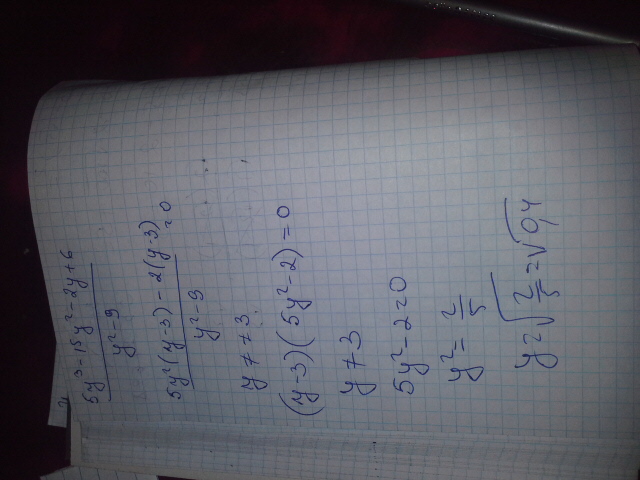 5y³-15y²-2y+6
y²-9
5y²(y-3)-2(y-3) = 0
y²-9
y ≠ ±3
(y-3)(5y²-2)=0
y ≠ 3
5y²-2=0
y² = 2/5
y = √2/5 = √0,4